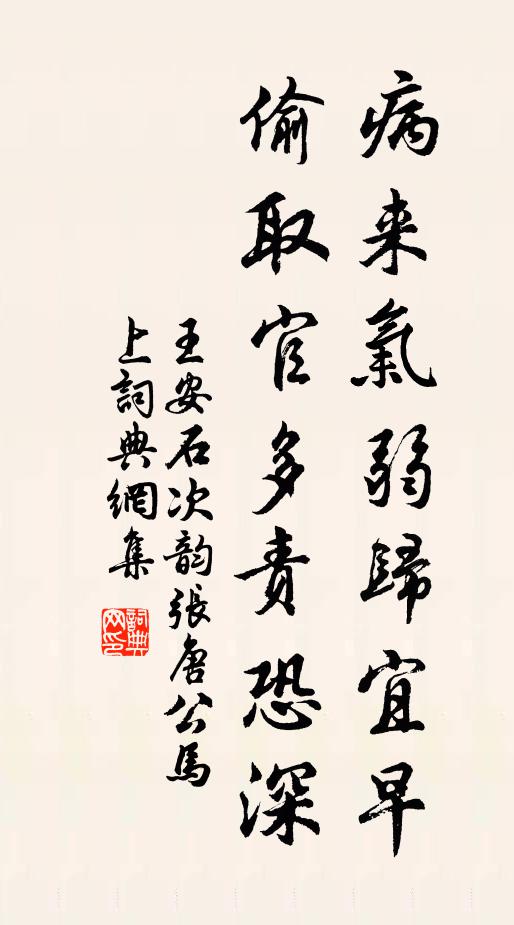 病来氣弱歸宜早
偷取官多責恐深
王安石次韵張唐公馬
上詞典網集
詞典
网印